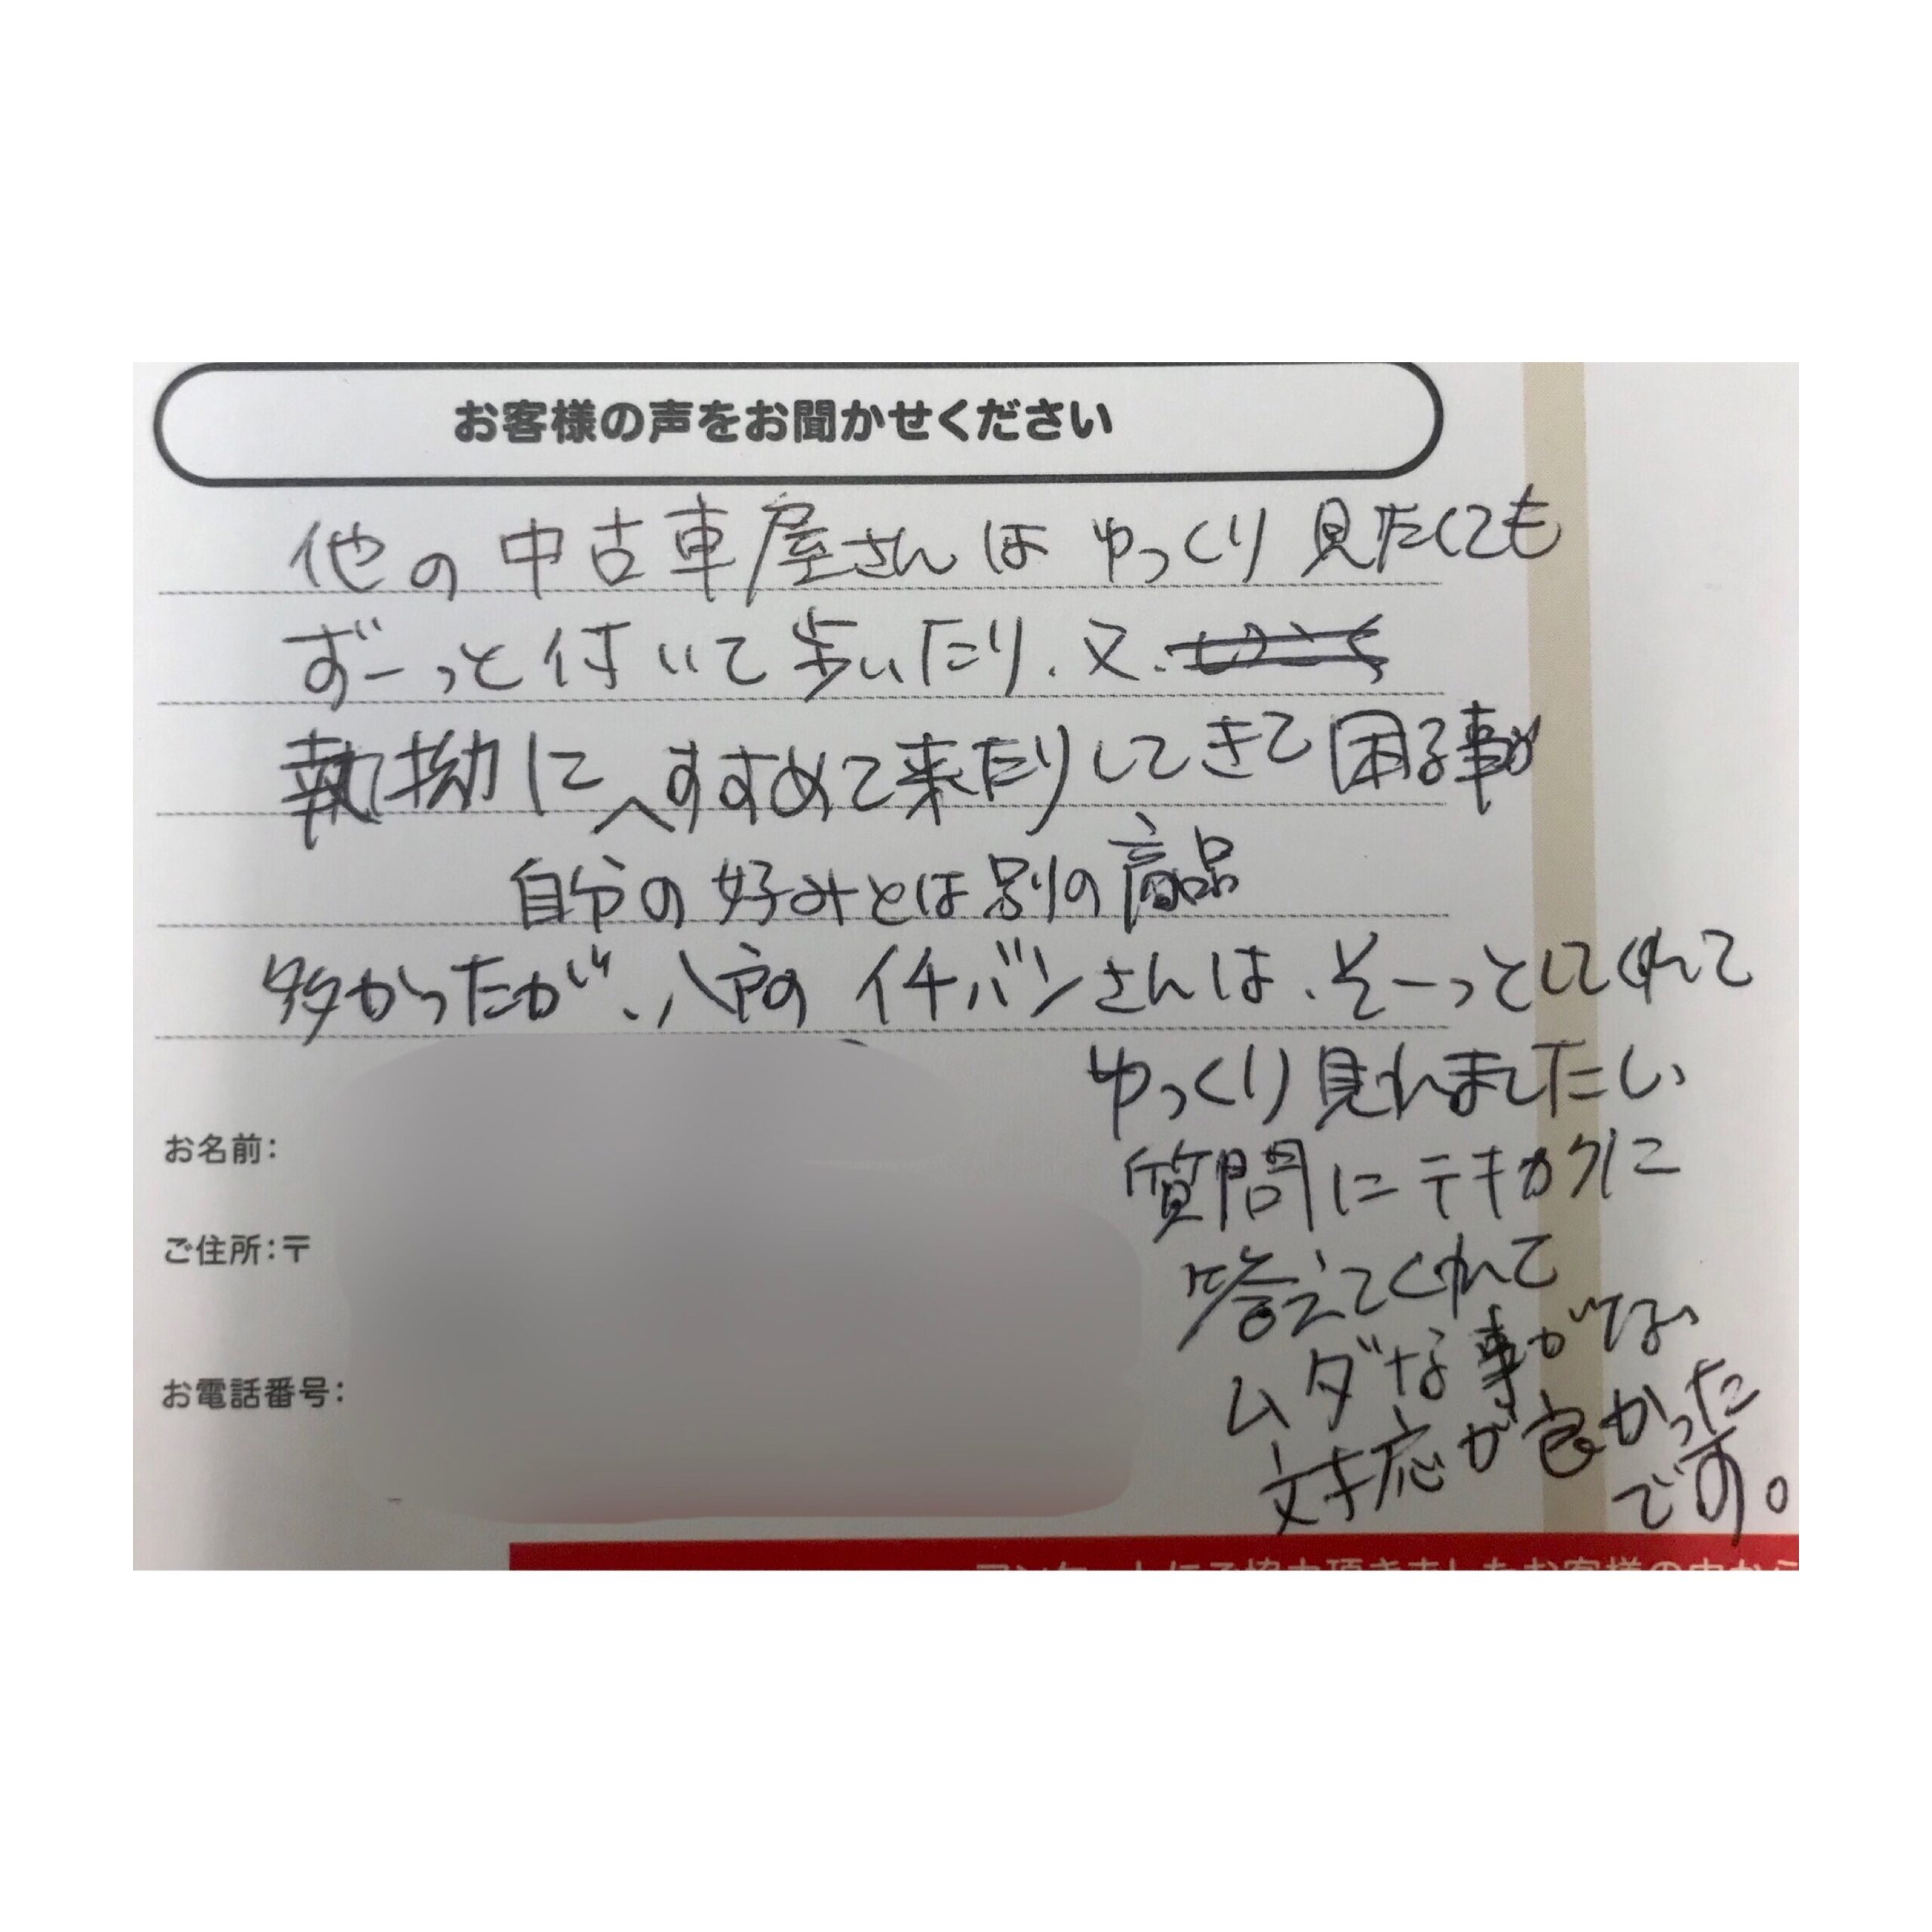 お客様の声をお聞かせください
他の中古車屋さんはゆっくり見たくても
ずーっと付いて歩いたり、又、
執拗にすすめて来たりしてきて困る事が
自分の好みとは別の商品
多かったが、八戸のイチバンさんは、そーっとしてくれて
ゆっくり見れましたしい
質問にテキカクに
答えてくれて
ムダな事がない
対応が良かった
です。
お名前:
ご住所:〒
お電話番号:
アンケートにご協力頂きましたお客様の中から